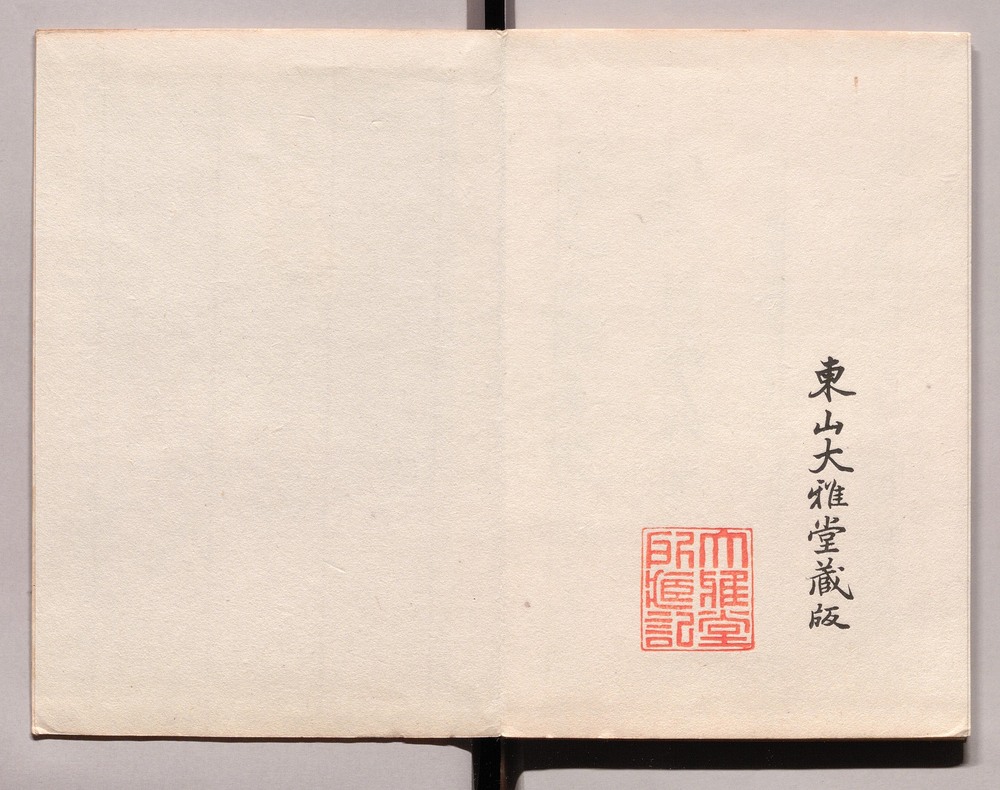 東山大雅堂蔵版
大雅堂
所蔵記